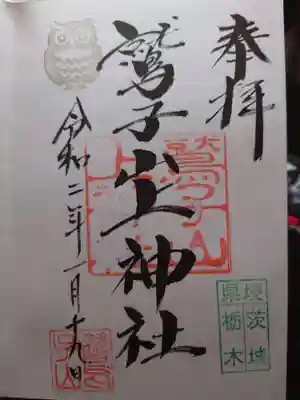 奉拝
鷲子山上神社
令和二年一月十九日
鷲子山
境茨城
県栃木